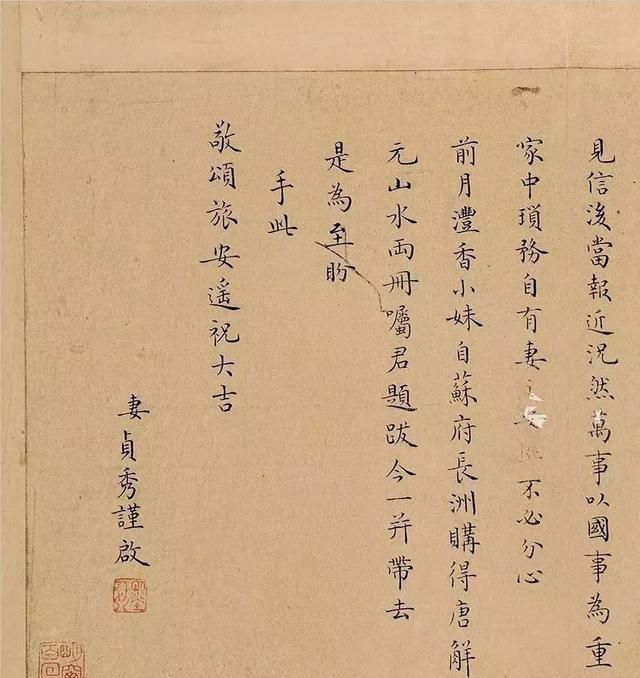 見信後當報近況然萬事以國事為重
家中瑣務自有妻不必分心
前月灃香小妹自蘇府長洲購得唐解
元山水兩冊囑君題跋今一并帶去
是為至盼
手此
敬頌旅安遥祝大吉
妻貞秀謹啟